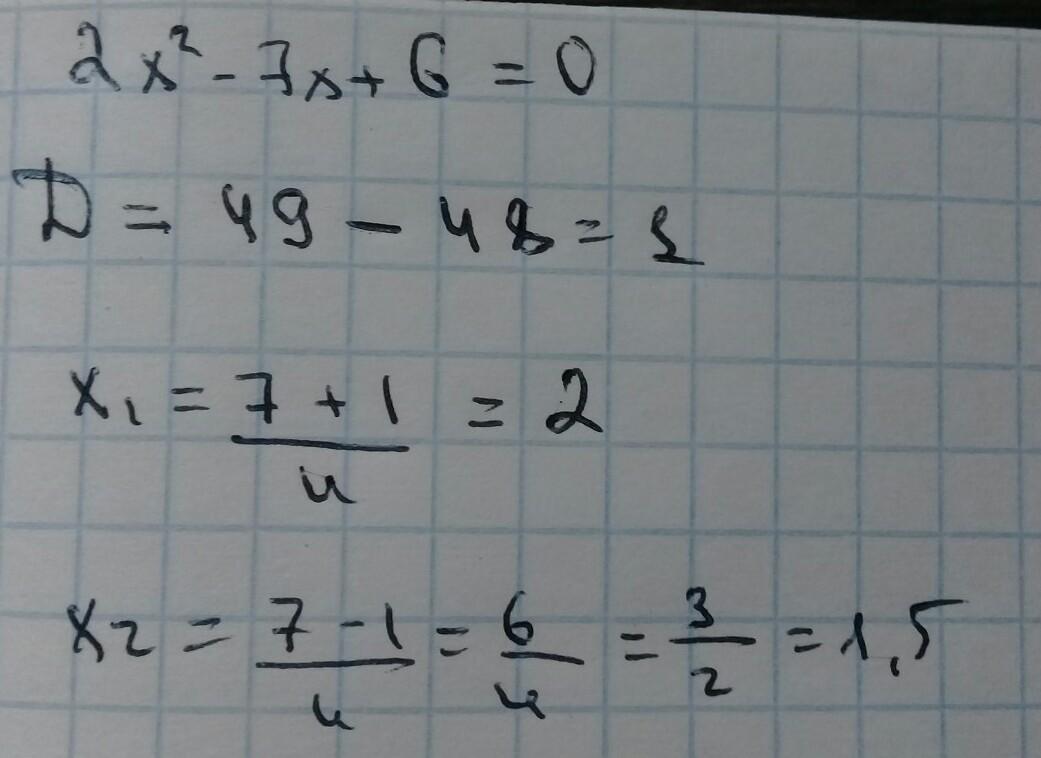 2x² - 7x + 6 = 0
D = 49 - 48 = 1
x₁ = (7 + 1)/4 = 2
x₂ = (7 - 1)/4 = 6/4 = 3/2 = 1,5